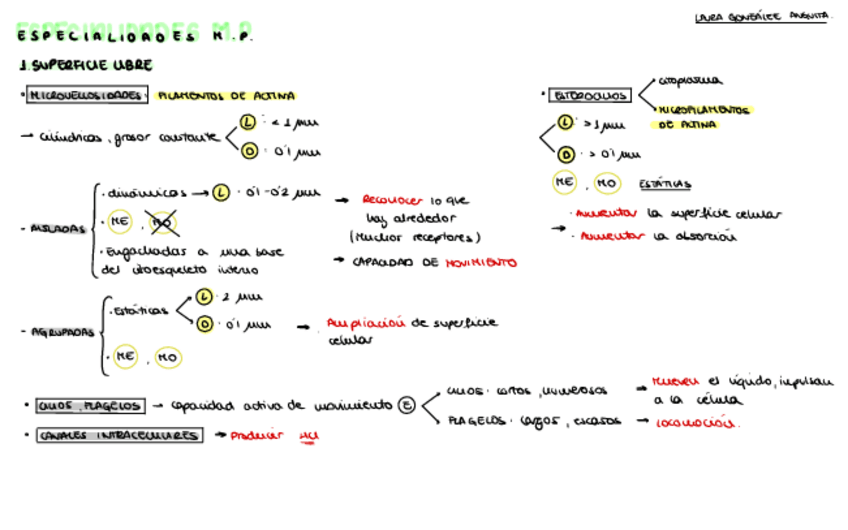 LAURA GONZÁLEZ ANGUITA.
ESPECIALIDADES M.P.
1. SUPERFICIE LIBRE
· MICROVELLOSIDADES: FILAMENTOS DE ACTINA
→ cilíndricas, grosor constante
L : < 1 μm
D · 0'1 μm
- AISLADAS
· dinámicas → L · 0'1-0'2 μm
· ME , MO
· Enganchadas a una base
del citoesqueleto interno
→ Reconocer lo que
hay alrededor
(Muchos receptores)
→ CAPACIDAD DE MOVIMIENTO
- AGRUPADAS
· Estáticas
L · 2 μm
D · 0'1 μm
· ME , MO
→ Ampliación de superficie
celular
· ESTEREOCILIOS
citoplasma
MICROFILAMENTOS
DE ACTINA
L · >1 μm
D · > 0'1 μm
ME , MO ESTÁTICAS
→ · Aumentar la superficie celular
· Aumentar la absorción
· CILIOS, FLAGELOS → capacidad activa de movimiento E
CILIOS · cortos, numerosos → mueven el líquido, impulsan
a la célula
FLAGELOS · largos, escasos → LOCOMOCIÓN.
· CANALES INTRACELULARES → Producir HCl